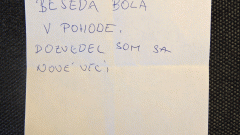 BESEDA BOLA
V POHODE,
DOZVEDEL SOM SA
NOVÉ VECI